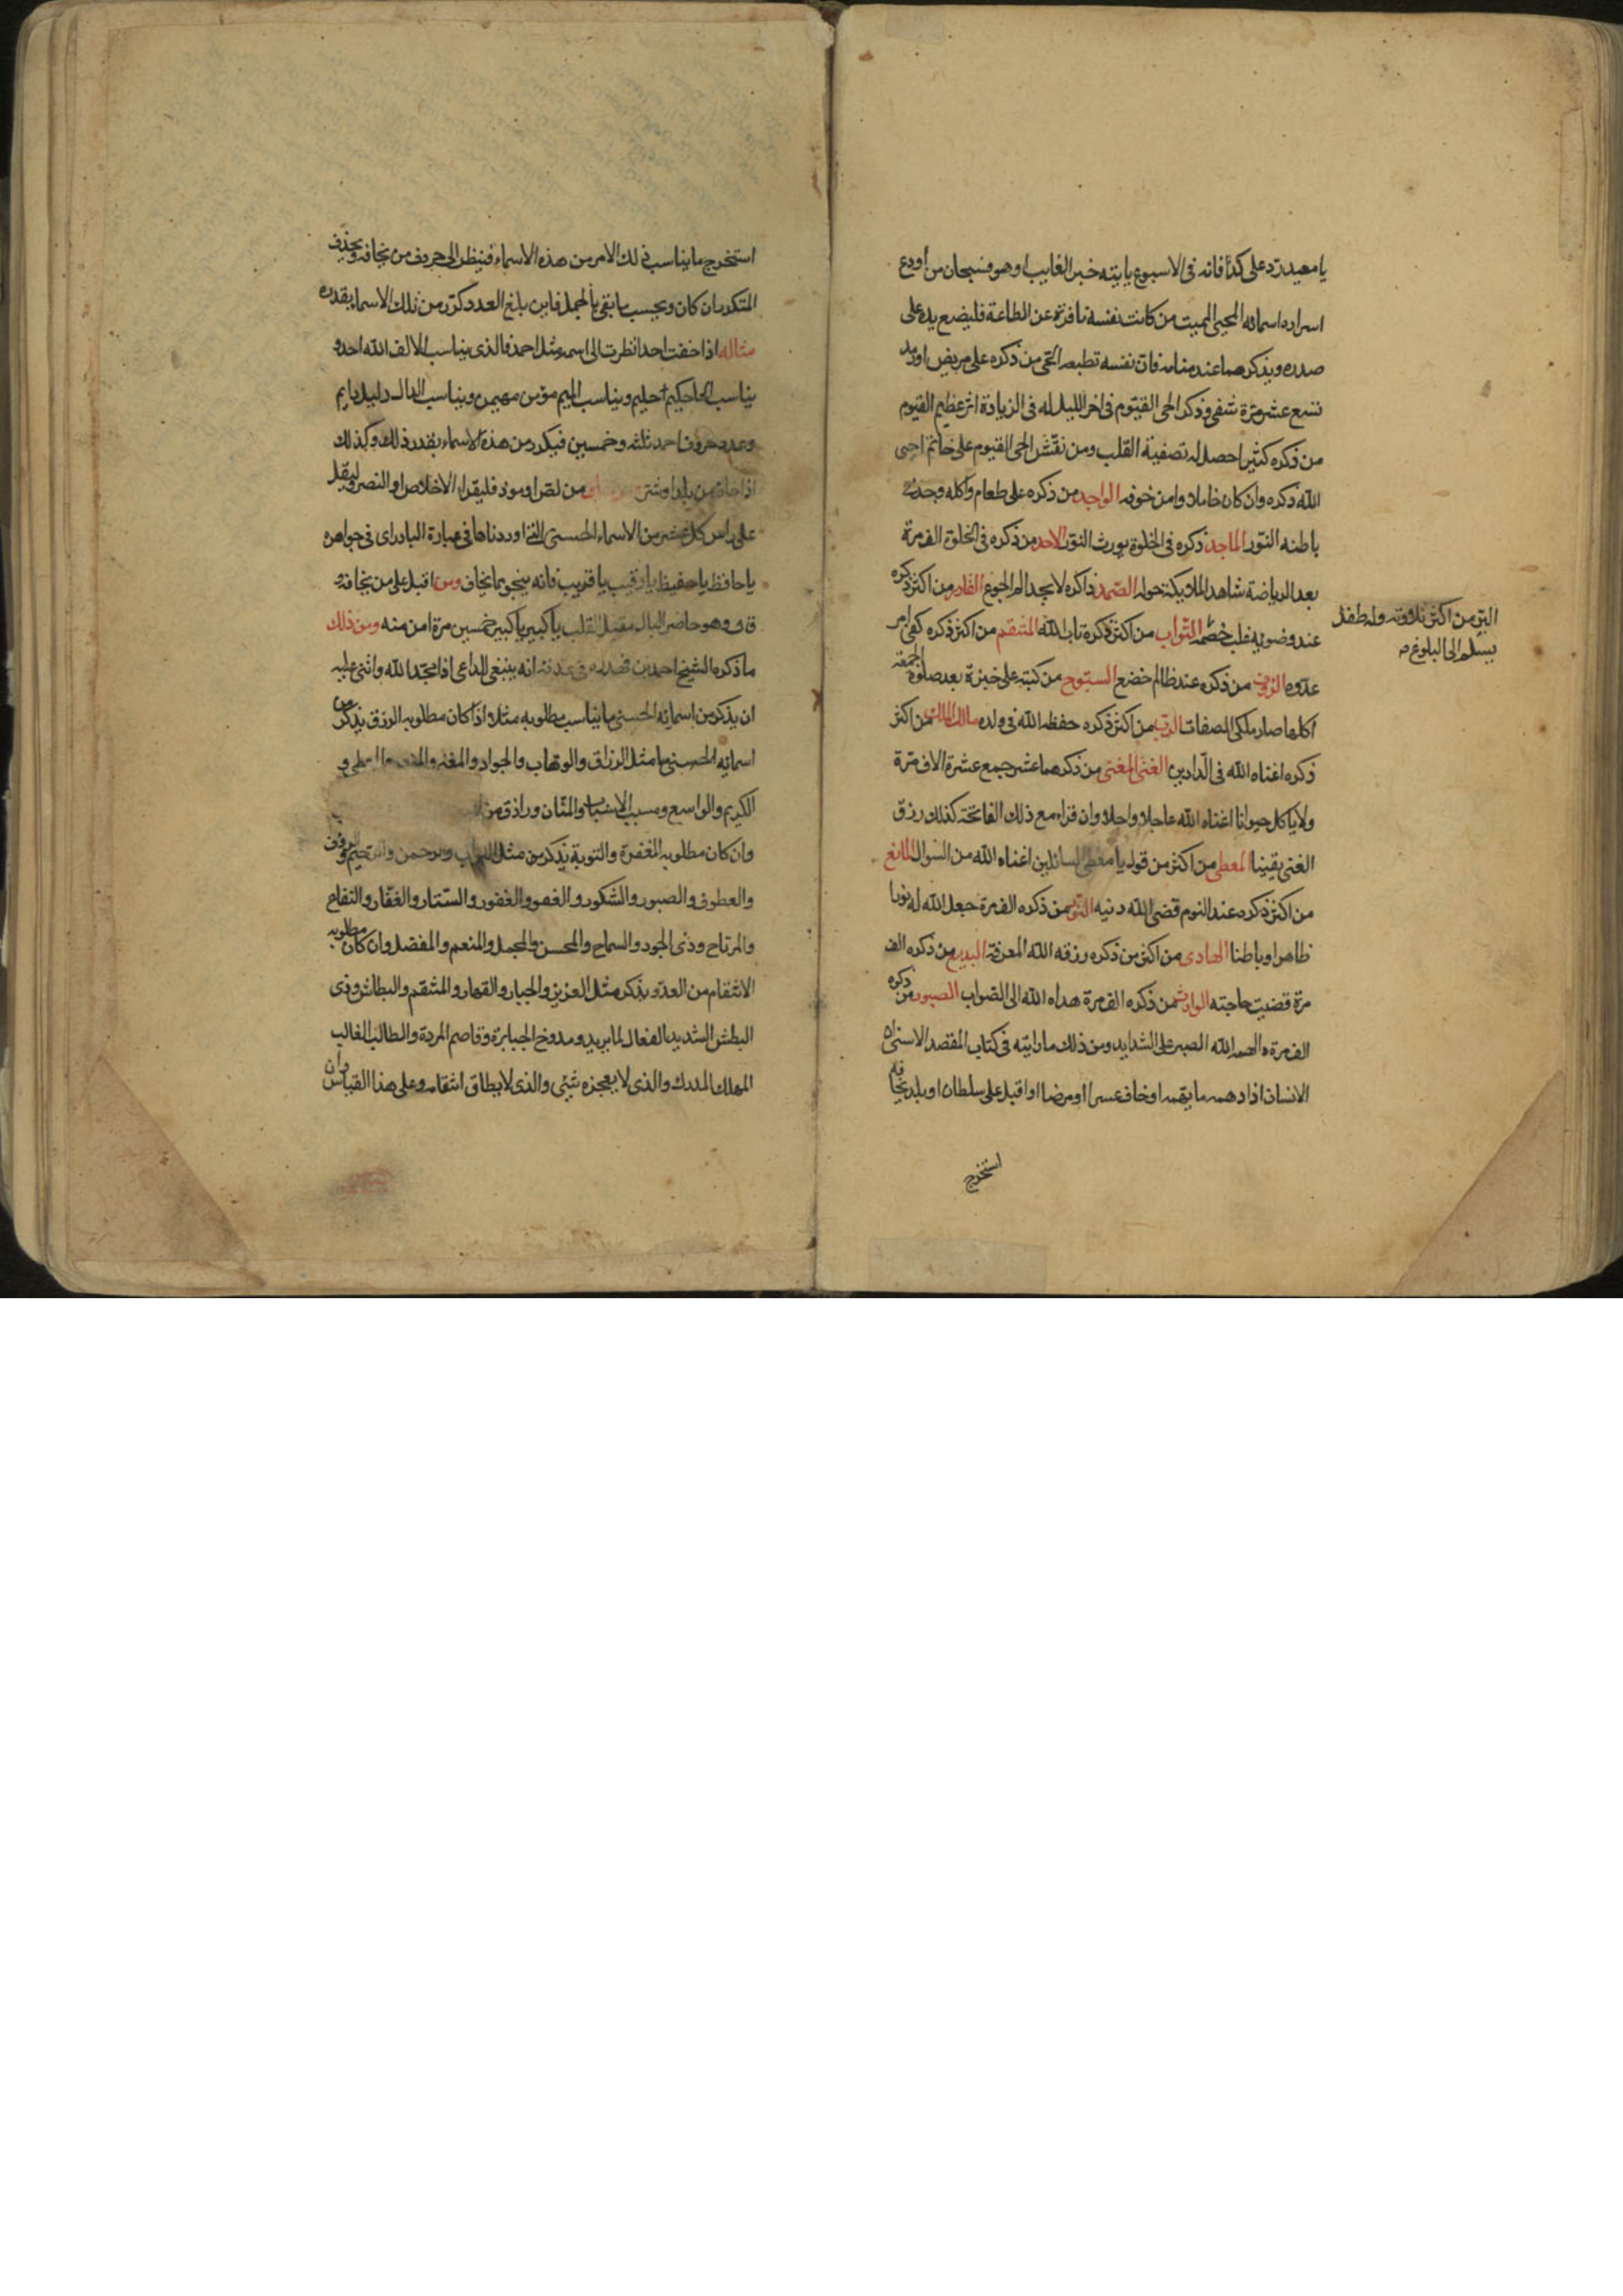 يا معيد رد على كذا فانه في الاسبوع ياتيه خبر الغايب او هو فسبحان من اودع
اسراره اسمائه المحيي المميت من كانت نفسه نافرة عن الطاعة فليضع يده على
صدره ويذكرهما عند منامه فان نفسه تطيعه الحي من ذكره على مريض او رمد
تسع عشر مرة شفي وذكر الحي القيوم في اخر الليل له في الزيادة اثر عظيم القيوم
من ذكره كثيرا حصل له تصفية القلب ومن نقش الحي القيوم على خاتم احيى
الله ذكره وان كان خاملا وامن خوفه الواجد من ذكره على طعام واكله وجد في
باطنه النور الماجد ذكره في الخلوة يورث النور الاحد من ذكره في الخلوة الف مرة
بعد الرياضة شاهد الملايكة حوله الصمد ذاكره لا يجد الم الجوع القادر من اكثر ذكره
عند وضويه غلب خصمه التواب من اكثر ذكره تاب الله المنتقم من اكثر ذكره كفي امر
عدوه الرؤف من ذكره عند ظالم خضع السبوح من كتبه على خبزة بعد صلوة الجمعة
اكلها صار ملكي الصفات الرب من اكثر ذكره حفظه الله في ولده مالك الملك من اكثر
ذكره اغناه الله في الدارين الغني المغني من ذكرهما عشر جمع عشرة الاف مرة
ولا ياكل حيوانا اغناه الله عاجلا واجلا وان قراء مع ذلك الفاتحة كذلك رزق
الغنى يقينا المعطي من اكثر من قوله يا معطي السائلين اغناه الله من السوال المانع
من اكثر ذكره عند النوم قضى الله دينه النور من ذكره الف مرة جعل الله له نورا
ظاهرا وباطنا الهادي من اكثر من ذكره رزقه الله المعرفة البديع من ذكره الف
مرة قضيت حاجته الوارث من ذكره الف مرة هداه الله الى الصواب الصبور من ذكره
الف مرة الهمه الله الصبر على الشدايد ومن ذلك ما رايته في كتاب المقصد الاسنى ان
الانسان اذا دهمه ما يهمه او خاف عسرا او مرضا او اقبل على سلطان او بلد يخافه
استخرج
البر من اكثر تلاوته وله طفل
يسلم الى البلوغ
استخرج ما يناسب ذلك الامر من هذه الاسماء فينظر الى حروف من يخافه ويحذف
المتكرر ان كان ويحسب ما بقي بالجمل فاين بلغ العدد كرر من تلك الاسماء بقدره
مثاله اذا خفت احدا نظرت الى اسمه مثل احمد فالذي يناسب الالف الله احد و
يناسب الحا حكيم حليم ويناسب الميم مؤمن مهيمن ويناسب الدال دليل دايم
وعدد حروف احمد ثلثه وخمسين فيكرر من هذه الاسماء بقدر ذلك وكذلك
اذا خاف من بلد او من لص او موذ فليقراء الاخلاص او النصر وليقل
على راس كل عشر من الاسماء الحسنى التي اوردناها في عبارة البادراي في جواهره
يا حافظ يا حفيظ يا رقيب يا قريب فانه ينجو مما يخاف ومن اقبل على من يخافه و
ق وهو حاضر البال مقبل القلب يا كبير يا كبير خمسين مرة امن منه ومن ذلك
ما ذكره الشيخ احمد بن فهد في عدته انه ينبغي للداعي اذا مجد الله واثنى عليه
ان يذكر من اسمائه الحسنى ما يناسب مطلوبه مثلا اذا كان مطلوبه الرزق يذكر من
اسمائه الحسنى ما مثل الرزاق والوهاب والجواد والمغني والمنعم والمعطي و
الكريم والواسع ومسبب الاسباب والمنان ورازق من
وان كان مطلوبه المغفرة والتوبة يذكر من مثل التواب والرحمن والرحيم والرؤف
والعطوف والصبور والشكور والغفو والغفور والستار والغفار والنفاح
والمرتاح وذي الجود والسماح والمحسن والمجمل والمنعم والمفضل وان كان مطلوبه
الانتقام من العدو يذكر مثل العزيز والجبار والقهار والمنتقم والبطاش وذي
البطش الشديد الفعال لما يريد ومدوخ الجبابرة وقاصم المردة والطالب الغالب
المهلك المدرك والذي لا يعجزه شئ والذي لا يطاق انتقامه وعلى هذا القياس وان